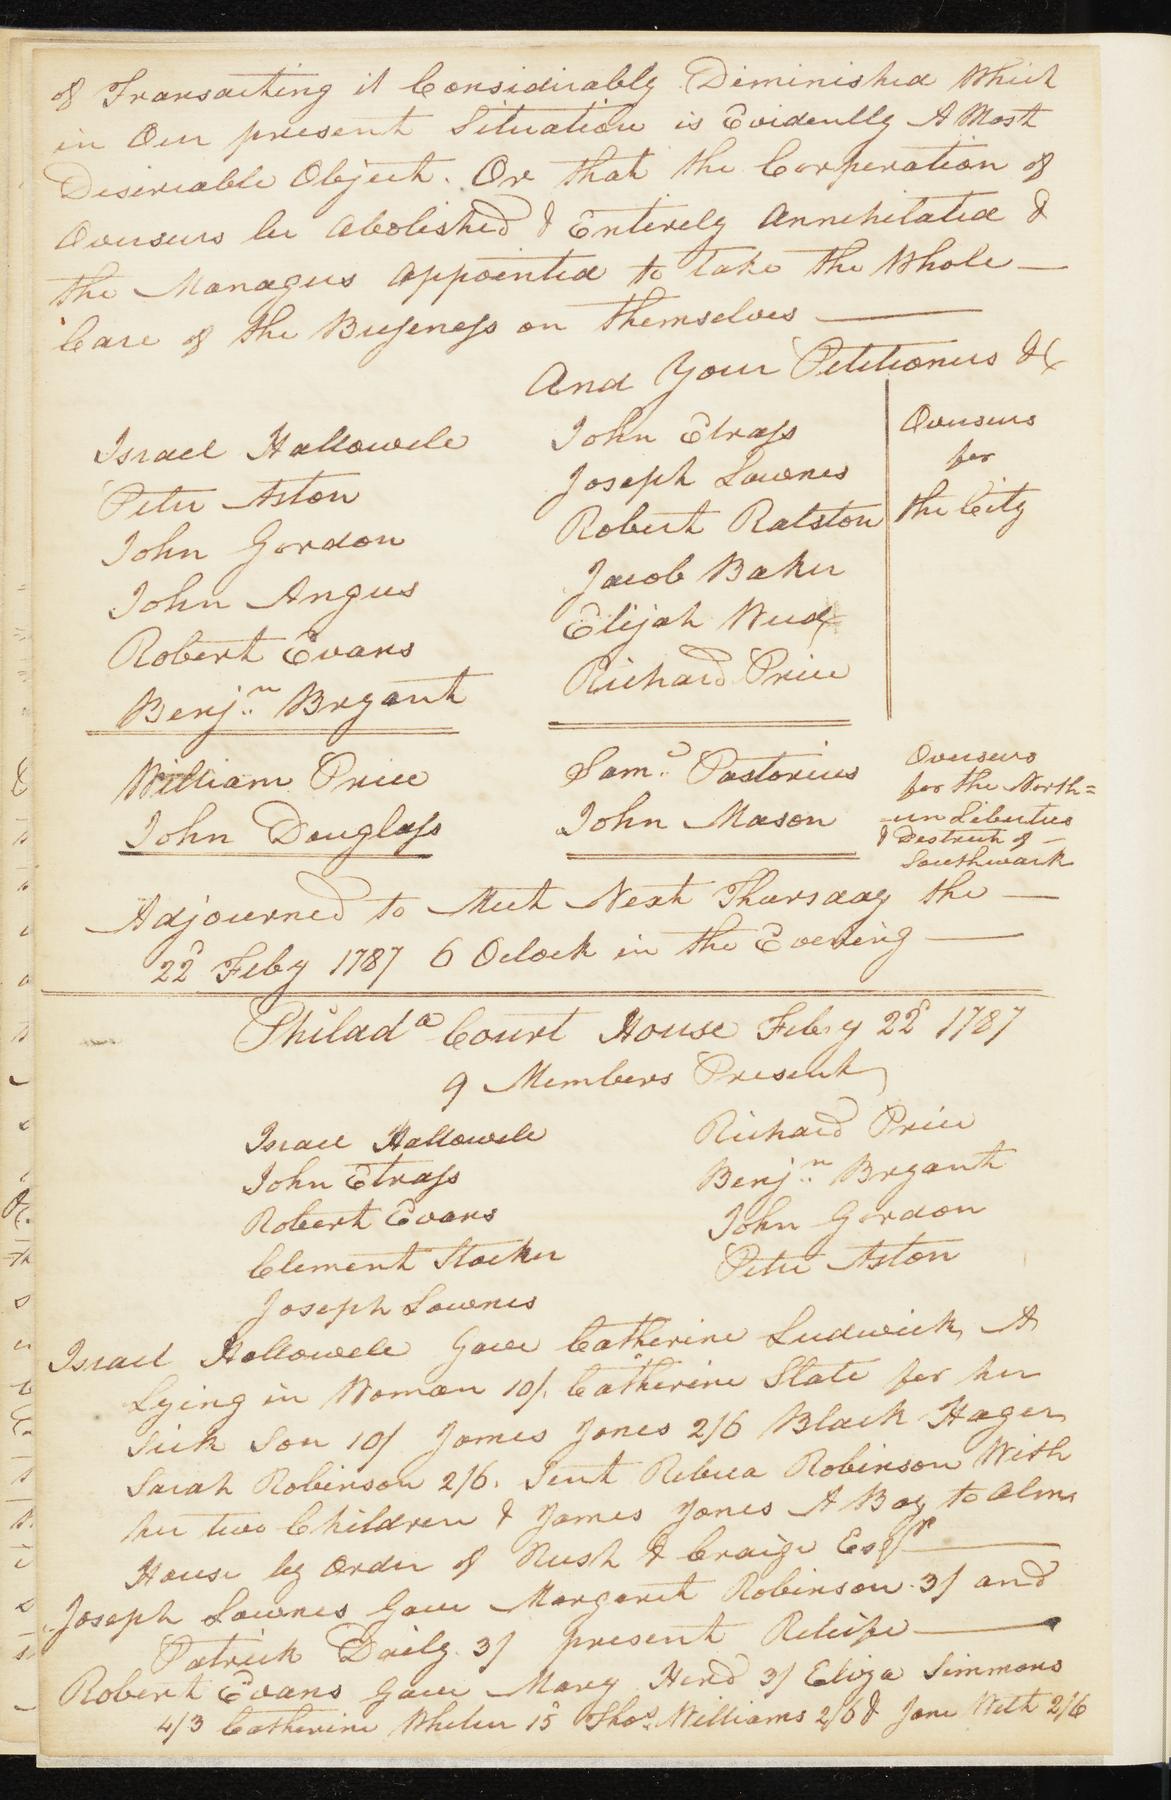 of Transacting it Considirably Diminished Which
in Our present Situation is Evidently A Most
Desireable Object. Or that the Corperation of
Overseers be Abolished & Entirely Annehilated &
the Managers appointed to take the Whole —
Care of the Buseness on themselves —
And Your Petitioners &c
Israel Hallowele
Peter Aston
John Gordon
John Angus
Robert Evans
Benjn. Bryant
John Etrass
Joseph Lownes
Robert Ralston
Jacob Baker
Elijah Weed
Richard Price
Overseers
for
the City
William Price
John Douglass
Saml. Pastorius
John Mason
Overseers
for the North=
ern Liberties
& Destrict of —
Southwark
Adjourned to Meet Next Thursday the —
22d Feby 1787 6 Oclock in the Evening —
Philada Court House Feby 22d 1787
9 Members Present
Israel Hallowele
John Etrass
Robert Evans
Clement Stocker
Joseph Lownes
Richard Price
Benjn. Bryant
John Gordon
Peter Aston
Israel Hallowele Gave Catherine Ludwick A
Lying in Woman 10/. Catherine State for her
Sick Son 10/ James Jones 2/6 Black Hager
Sarah Robinson 2/6. Sent Rebeca Robinson With
her two Children & James Jones A Boy to Alms
House by Order of Rush & Craige Esqrs —
Joseph Lownes Gave Margaret Robinson 3/ and
Patrick Daily 3/ present Releife —
Robert Evans Gave Mary Herd 3/ Eliza Simmons
4/3 Catherine Whelen 15 Thos. Williams 2/6 & Jane With 2/6